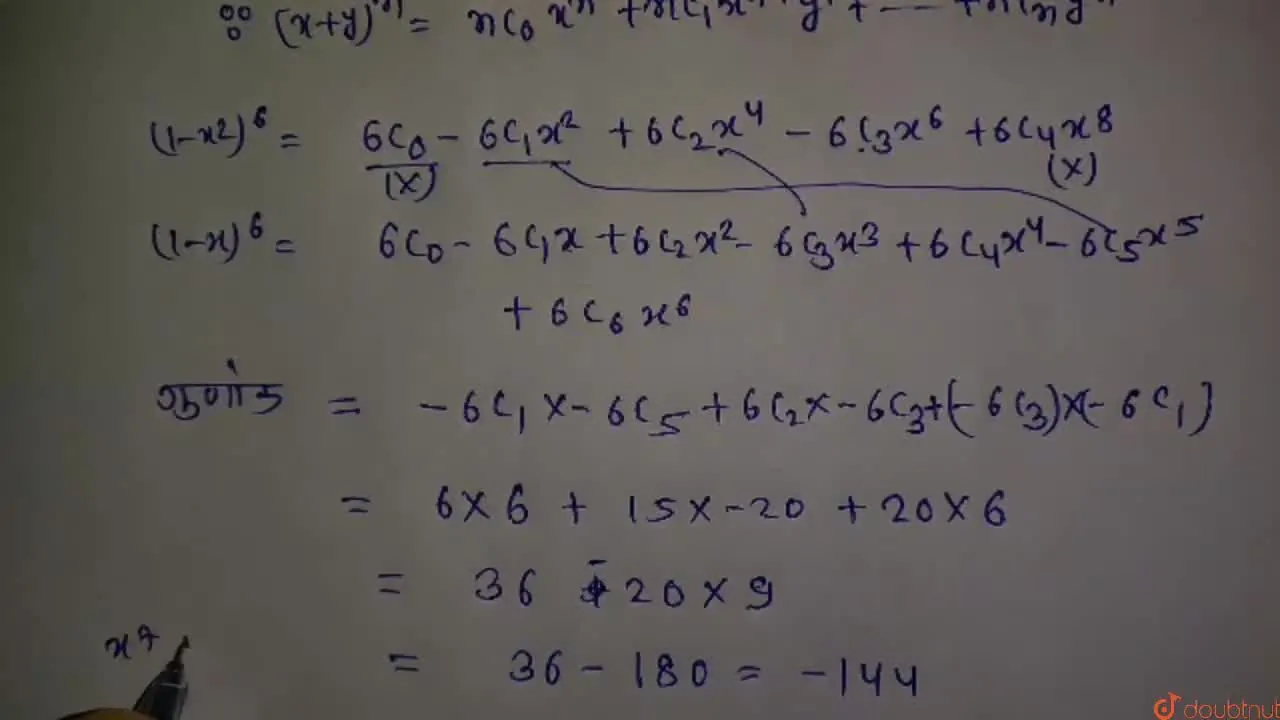 (x+y)ⁿ = nC₀ xⁿ + nC₁x y + --- +
(1-x2)⁶ = 6C₀ - 6C₁x² + 6C₂x⁴ - 6C₃x⁶ + 6C₄x⁸
(x) (x)
(1-x)⁶ = 6C₀ - 6C₁x + 6C₂x² - 6C₃x³ + 6C₄x⁴ - 6C₅x⁵
+ 6C₆x⁶
गुणांक = -6C₁ x - 6C₅ + 6C₂x - 6C₃+(-6C₃)x(-6C₁]
= 6x6 + 15x-20 + 20x6
= 36 - 20x9
x⁷
= 36 - 180 = -144
doubtnut